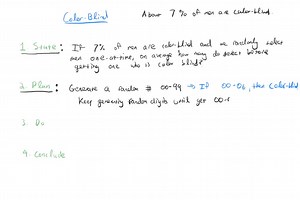 Color-Blind
About 7% of men are color-blind
1. State: If 7% of men are color-blind and we randomly select
men one-at-time, on average how many do select before
getting one who is color blind?
2. Plan: Generate a random # 00-99 → If 00-06, then Color-Bl
Keep generating random digits until get 00-
3. Do
4. Conclude